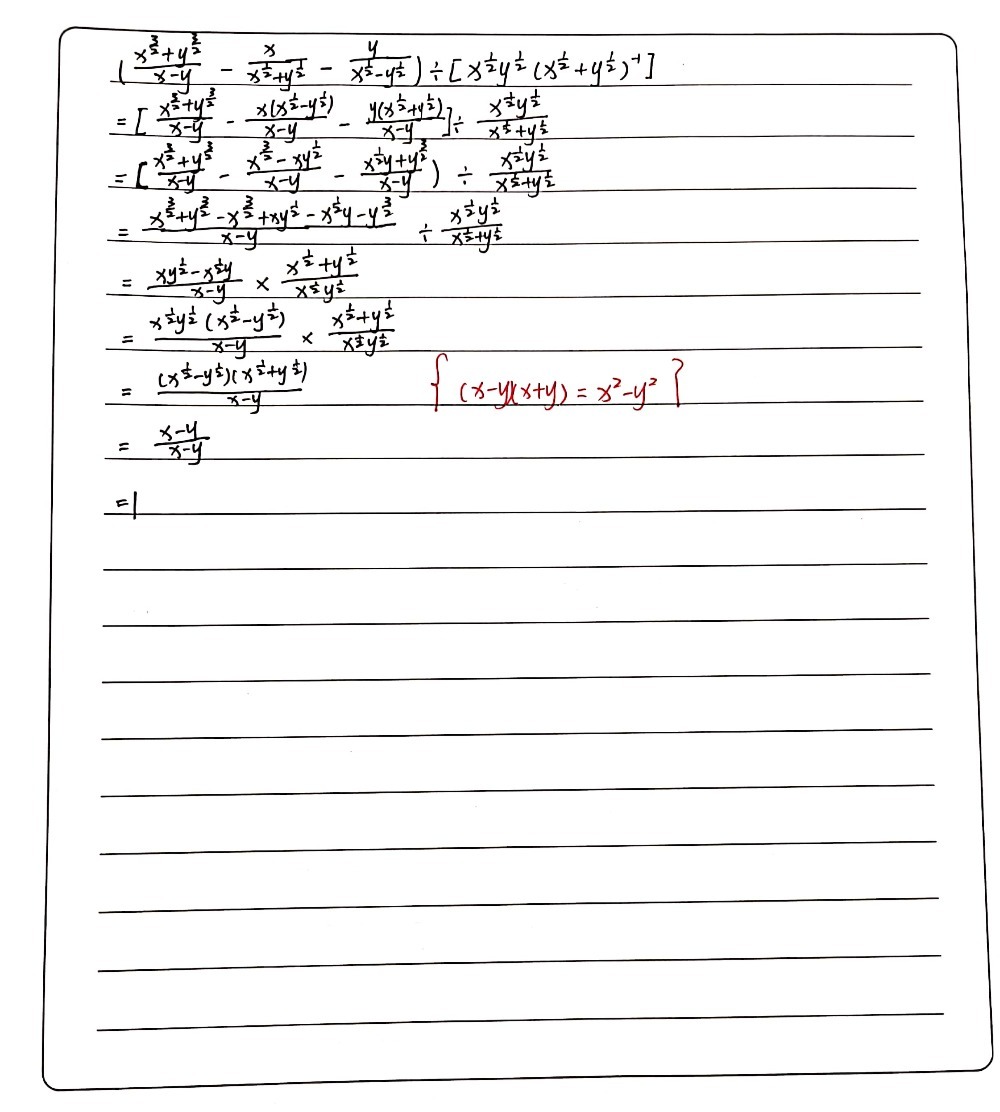 (\frac{x^{\frac{3}{2}}+y^{\frac{3}{2}}}{x-y} - \frac{x}{x^{\frac{1}{2}}+y^{\frac{1}{2}}} - \frac{y}{x^{\frac{1}{2}}-y^{\frac{1}{2}}}) ÷ [x^{\frac{1}{2}}y^{\frac{1}{2}}(x^{\frac{1}{2}}+y^{\frac{1}{2}})^{-1}]
= [\frac{x^{\frac{3}{2}}+y^{\frac{3}{2}}}{x-y} - \frac{x(x^{\frac{1}{2}}-y^{\frac{1}{2}})}{x-y} - \frac{y(x^{\frac{1}{2}}+y^{\frac{1}{2}})}{x-y}] ÷ \frac{x^{\frac{1}{2}}y^{\frac{1}{2}}}{x^{\frac{1}{2}}+y^{\frac{1}{2}}}
= [\frac{x^{\frac{3}{2}}+y^{\frac{3}{2}}}{x-y} - \frac{x^{\frac{3}{2}}-xy^{\frac{1}{2}}}{x-y} - \frac{x^{\frac{1}{2}}y+y^{\frac{3}{2}}}{x-y}) ÷ \frac{x^{\frac{1}{2}}y^{\frac{1}{2}}}{x^{\frac{1}{2}}+y^{\frac{1}{2}}}
= \frac{x^{\frac{3}{2}}+y^{\frac{3}{2}}-x^{\frac{3}{2}}+xy^{\frac{1}{2}}-x^{\frac{1}{2}}y-y^{\frac{3}{2}}}{x-y} ÷ \frac{x^{\frac{1}{2}}y^{\frac{1}{2}}}{x^{\frac{1}{2}}+y^{\frac{1}{2}}}
= \frac{xy^{\frac{1}{2}}-x^{\frac{1}{2}}y}{x-y} × \frac{x^{\frac{1}{2}}+y^{\frac{1}{2}}}{x^{\frac{1}{2}}y^{\frac{1}{2}}}
= \frac{x^{\frac{1}{2}}y^{\frac{1}{2}}(x^{\frac{1}{2}}-y^{\frac{1}{2}})}{x-y} × \frac{x^{\frac{1}{2}}+y^{\frac{1}{2}}}{x^{\frac{1}{2}}y^{\frac{1}{2}}}
= \frac{(x^{\frac{1}{2}}-y^{\frac{1}{2}})(x^{\frac{1}{2}}+y^{\frac{1}{2}})}{x-y} { (x-y)(x+y) = x^2-y^2 }
= \frac{x-y}{x-y}
= 1